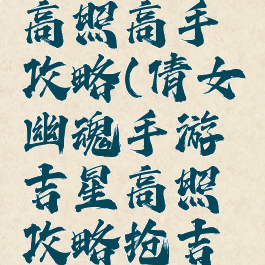 高照高手
攻略(倩女
幽魂手游
吉星高照
攻略抢吉